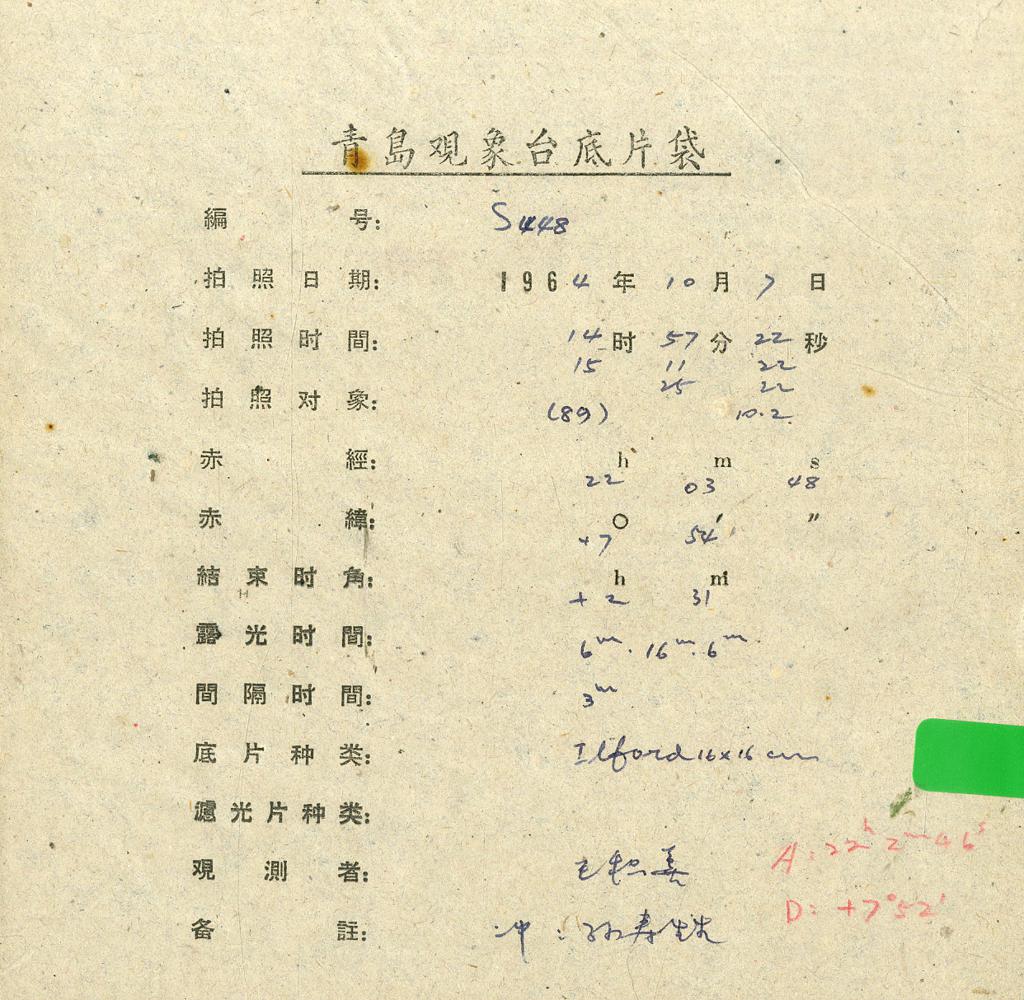 青島观象台底片袋
編号: S448
拍照日期: 1964年10月7日
拍照时間: 14时57分22秒
15 11 22
25 22
拍照对象: (89) 10.2
赤經: 22h 03m 48s
赤緯: +7° 54′ ″
結束时角: +2h 31m
露光时間: 6m. 16m. 6m
間隔时間: 3m
底片种类: Ilford 16x16 cm
濾光片种类:
观測者:
A: 22h 2m 46s
D: +7°52′
备註: 冲: